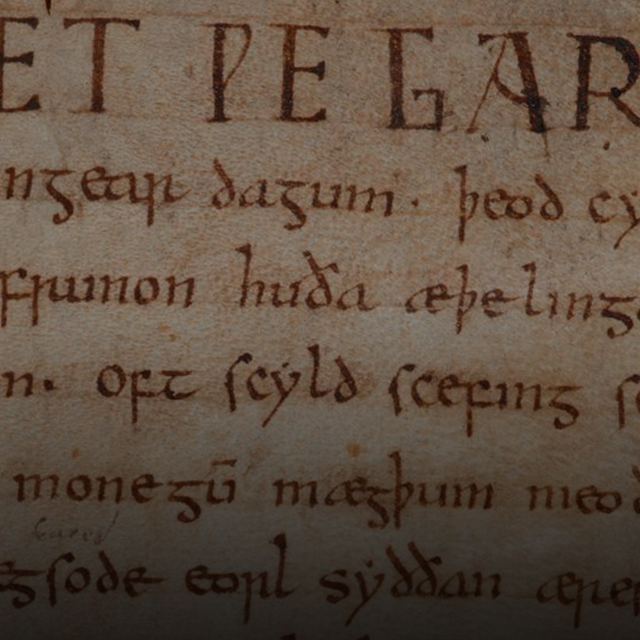 ET ǷE GAR
ngear dagum. þeod cy
frunon huða æþeling
n. oft scyld scefing sc
monegū mægþum meod
gsode eorl syððan ære